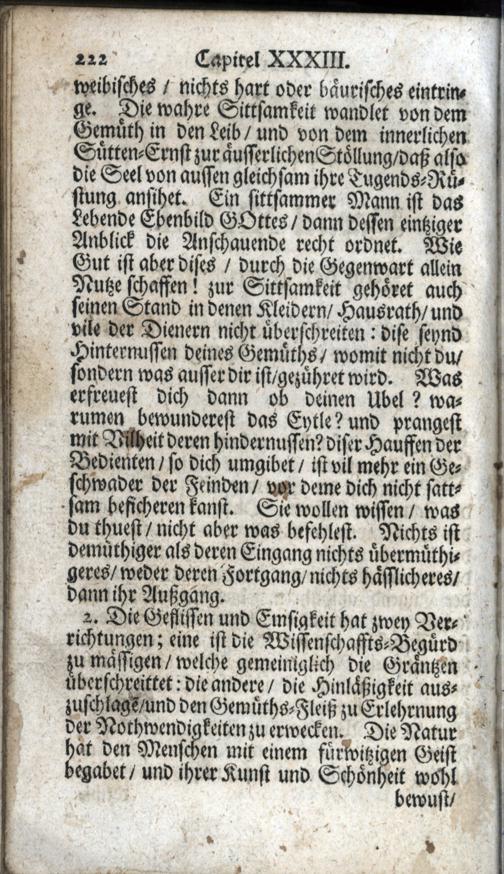 222 Capitel XXXIII.
weibisches / nichts hart oder bäurisches eintrin-
ge. Die wahre Sittsamkeit wandlet von dem
Gemüth in den Leib / und von dem innerlichen
Sütten-Ernst zur äusserlichen Stöllung/daß also
die Seel von aussen gleichsam ihre Tugends-Rü-
stung ansihet. Ein sittsammer Mann ist das
Lebende Ebenbild GOttes / dann dessen eintziger
Anblick die Anschauende recht ordnet. Wie
Gut ist aber dises / durch die Gegenwart allein
Nutze schaffen! zur Sittsamkeit gehöret auch
seinen Stand in denen Kleidern/ Hausrath/ und
vile der Dienern nicht überschreiten: dise seynd
Hinternussen deines Gemüths / womit nicht du/
sondern was ausser dir ist/gezühret wird. Was
erfreuest dich dann ob deinen Ubel? wa-
rumen bewunderest das Eytle? und prangest
mit Vilheit deren hindernussen? diser Hauffen der
Bedienten / so dich umgibet / ist vil mehr ein Ge-
schwader der Feinden / vor deme dich nicht satt-
sam besicheren kanst. Sie wollen wissen / was
du thuest / nicht aber was befehlest. Nichts ist
demüthiger als deren Eingang nichts übermüthi-
geres/ weder deren Fortgang/ nichts hässlicheres/
dann ihr Außgang.
2. Die Geflissen und Emsigkeit hat zwey Ver-
richtungen; eine ist die Wissenschaffts-Begürd
zu mässigen / welche gemeiniglich die Gräntzen
überschreittet: die andere / die Hinläßigkeit aus-
zuschlagē/und den Gemüths-Fleiß zu Erlehrnung
der Nothwendigkeiten zu erwecken. Die Natur
hat den Menschen mit einem fürwitzigen Geist
begabet / und ihrer Kunst und Schönheit wohl
bewust/